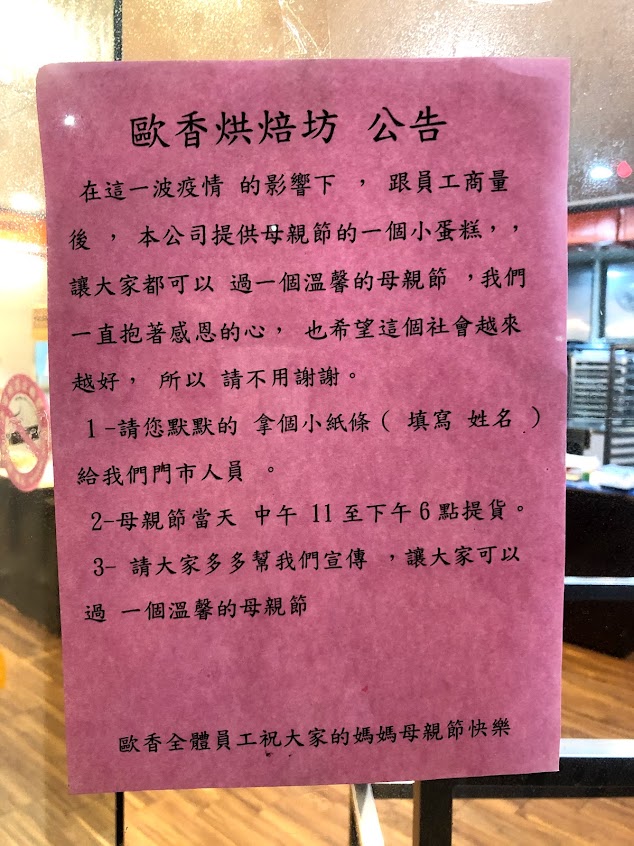 歐香烘焙坊 公告
在這一波疫情 的影響下 ， 跟員工商量
後 ， 本公司提供母親節的一個小蛋糕，，
讓大家都可以 過一個溫馨的母親節 ，我們
一直抱著感恩的心， 也希望這個社會越來
越好， 所以 請不用謝謝。
1-請您默默的 拿個小紙條( 填寫 姓名 )
給我們門市人員 。
2-母親節當天 中午 11至下午6點提貨。
3- 請大家多多幫我們宣傳 ，讓大家可以
過 一個溫馨的母親節
歐香全體員工祝大家的媽媽母親節快樂